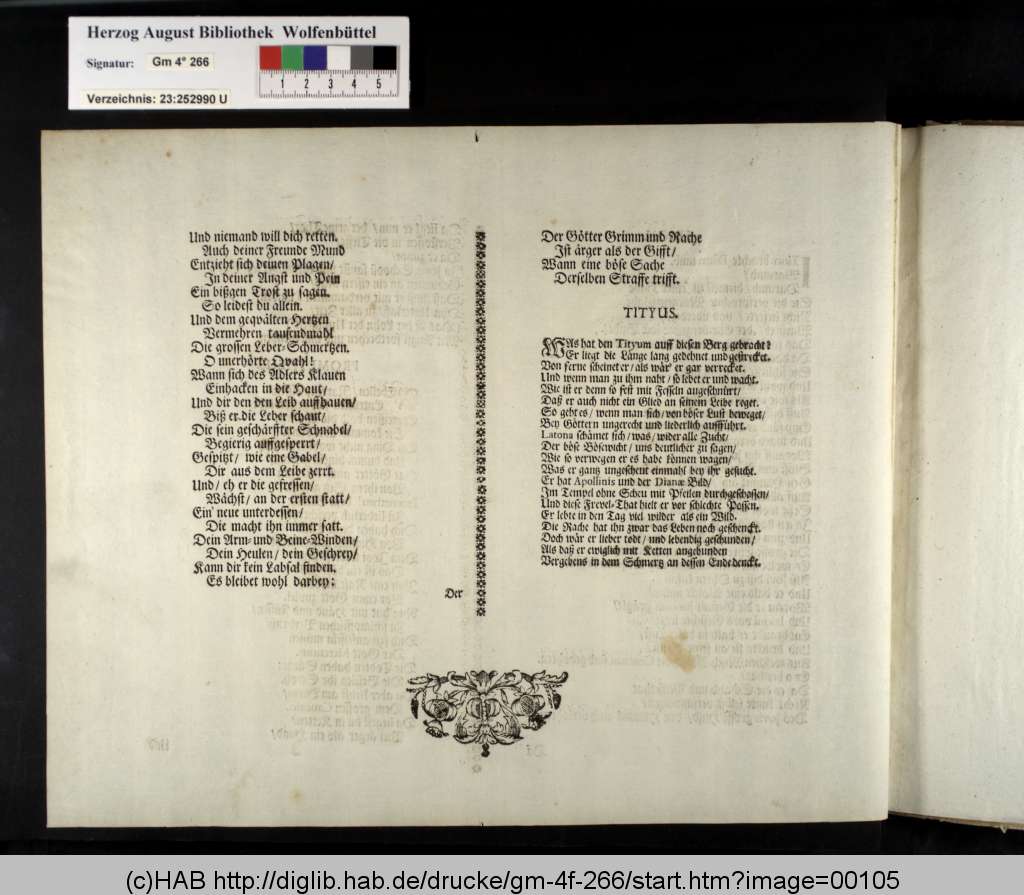 Herzog August Bibliothek Wolfenbüttel
Signatur: Gm 4° 266
1 2 3 4 5
Verzeichnis: 23:252990 U
Und niemand will dich retten.
Auch deiner Freunde Mund
Entzieht sich deinen Plagen/
In deiner Angst und Pein
Ein bißgen Trost zu sagen.
So leidest du allein.
Und dem geqvälten Hertzen
Vermehren tausendmahl
Die grossen Leber-Schmertzen.
O unerhörte Qvahl!
Wann sich des Adlers Klauen
Einhacken in die Haut/
Und dir den den Leib auffhauen/
Biß er die Leber schaut/
Die sein geschärffter Schnabel/
Begierig auffgesperrt/
Gespitzt/ wie eine Gabel/
Dir aus dem Leibe zerrt.
Und/ eh er die gefressen/
Wächst/ an der ersten statt/
Ein' neue unterdessen/
Die macht ihn immer satt.
Dein Arm- und Beine-Winden/
Dein Heulen/ dein Geschrey/
Kann dir kein Labsal finden.
Es bleibet wohl darbey:
Der
Der Götter Grimm und Rache
Ist ärger als der Gifft/
Wann eine böse Sache
Derselben Straffe trifft.
TITYUS.
WAs hat den Tityum auff diesen Berg gebracht?
Er liegt die Länge lang gedehnet und gestrecket.
Von ferne scheinet er/ als wär' er gar verrecket.
Und wenn man zu ihm naht/ so lebet er und wacht.
Wie ist er denn so fest mit Fesseln angeschnürt/
Daß er auch nicht ein Glied an seinem Leibe reget.
So geht es/ wenn man sich/ von böser Lust beweget/
Bey Göttern ungerecht und liederlich auffführt.
Latona schämet sich/ was/ wider alle Zucht/
Der böse Bösewicht/ uns deutlicher zu sagen/
Wie so verwegen er es habe können wagen/
Was er gantz ungescheut einmahl bey ihr gesucht.
Er hat Apollinis und der Dianæ Bild/
Im Tempel ohne Scheu mit Pfeilen durchgeschossen/
Und diese Frevel-That hielt er vor schlechte Possen.
Er lebte in den Tag viel wilder als ein Wild.
Die Rache hat ihn zwar das Leben noch geschenckt.
Doch wär er lieber todt/ und lebendig geschunden/
Als daß er ewiglich mit Ketten angebunden
Vergebens in dem Schmertz an dessen Ende denckt.
(c)HAB http://diglib.hab.de/drucke/gm-4f-266/start.htm?image=00105